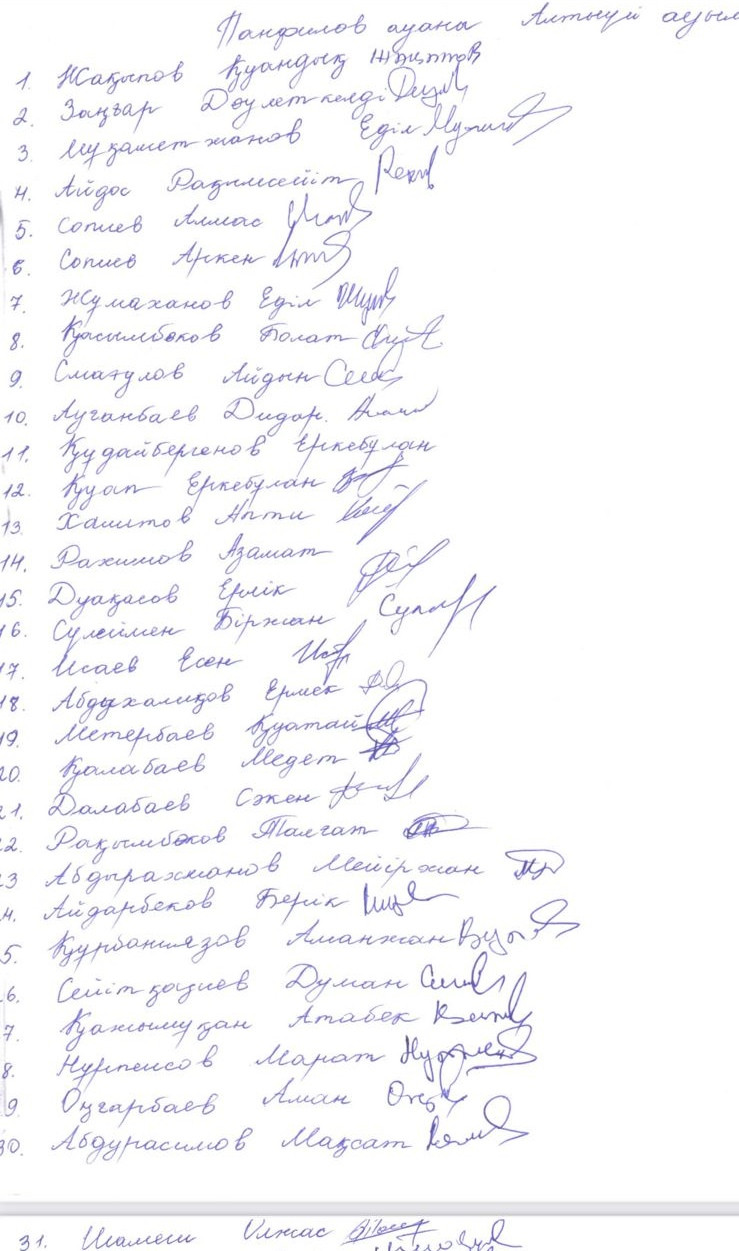 Панфилов ауданы Алтыуй ауыл
1. Жақыпов Қуандық
2. Заңғар Дәулеткелді
3. Мұқаметжанов Еділ
4. Айдос Рақымсейіт
5. Сопиев Алмас
6. Сопиев Аркен
7. Жумаханов Еділ
8. Қасымбеков Болат
9. Смағулов Айдын
10. Ауганбаев Дидар.
11. Құдайбергенов Еркебұлан
12. Қуат Еркебұлан
13. Хамитов
14. Рахимов Азамат
15. Дуақасов Ерлік
16. Сулеймен Біржан
17. Исаев Есен
18. Абдухалиқов Ермек
19. Метербаев Қуатай
20. Қалабаев Медет
21. Далабаев Сәкен
22. Рақымбеков Талғат
23 Абдырахманов Мейіржан
4. Айдарбеков Берік
5. Құрбаниязов Аманжан
6. Сейітқазиев Думан
7. Қажымұқан Атабек
8. Нурпеисов Марат
9 Оңғарбаев Аман
30. Абдурасимов Мақсат
31. Шамеш Олжас